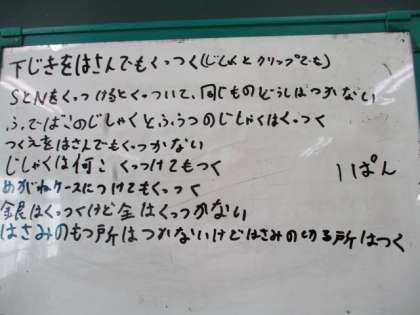 下じきをはさんでもくっつく(じしゃくとクリップでも)
SとNをくっつけるとくっついて、同じものどうしはつかない
ふでばこのじしゃくとふつうのじしゃくはくっつく
つくえをはさんでもくっつかない
じしゃくは何こくっつけてもつく
1ぱん
めがねケースにつけてもくっつく
銀はくっつくけど金はくっつかない
はさみのもつ所はつかないけどはさみの切る所はつく